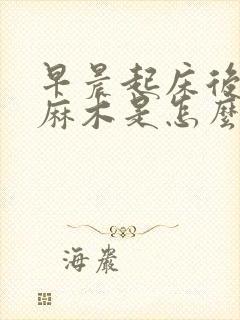 早晨起床後
麻木是怎麼
海嚴